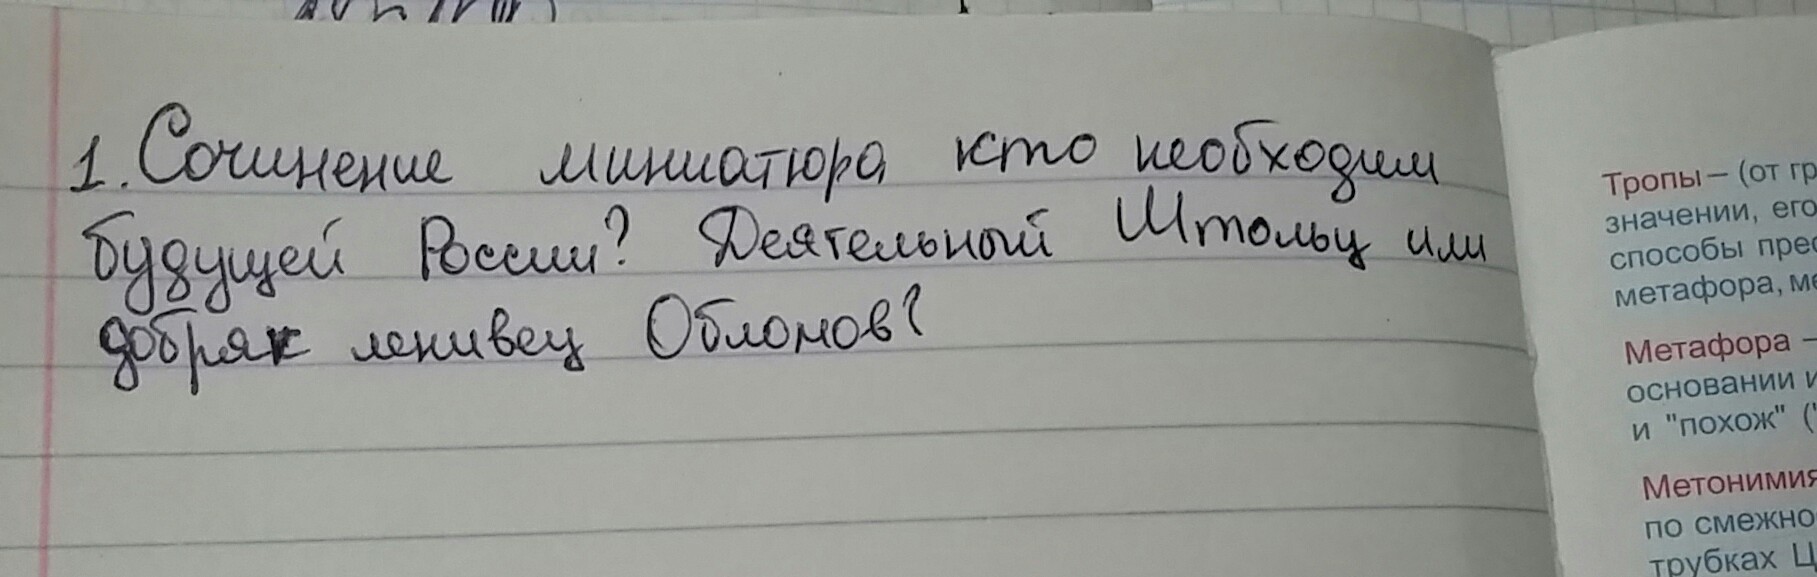 1. Сочинение миниатюра кто необходим
будущей России? Деятельный Штольц или
добряк ленивец Обломов?
Тропы – (от гр
значении, его
способы прес
метафора, ме
Метафора –
основании и
и "похож" (
Метонимия
по смежно
трубках Ц